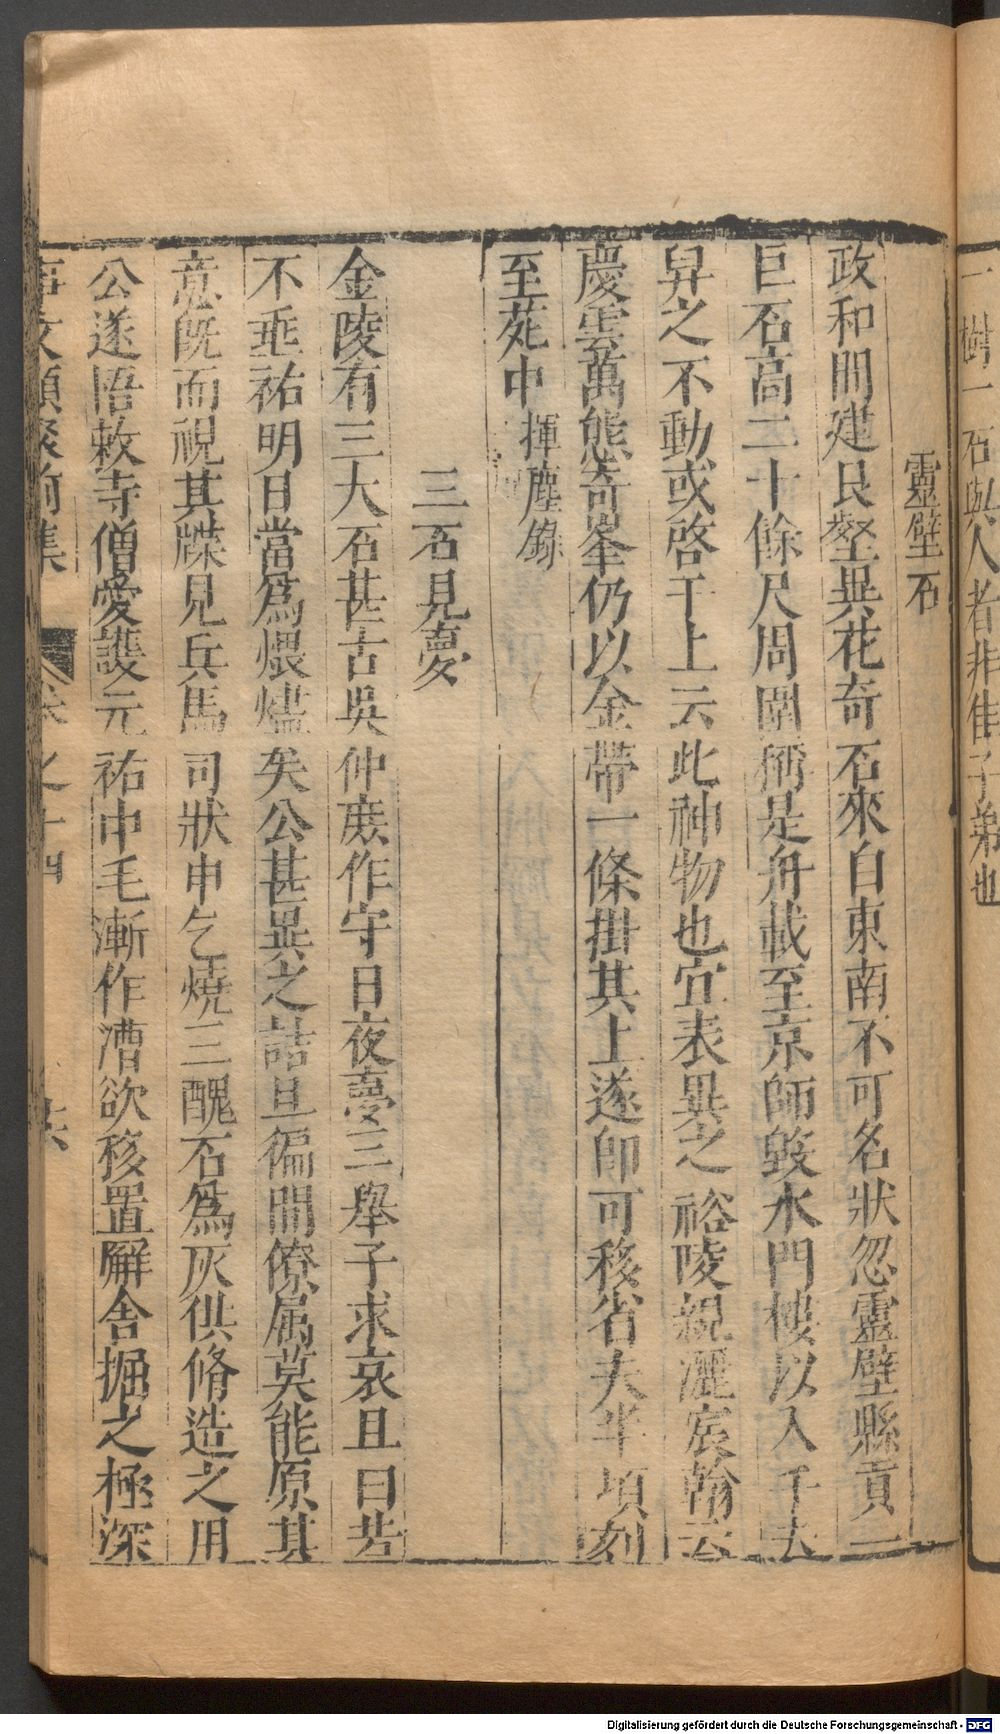 一樹一石與人者非佳子弟也
靈壁石
政和間建艮壑異花奇石來自東南不可名狀忽靈壁縣貢一
巨石高二十餘尺周圍稱是舟載至京師毀水門樓以入千夫
舁之不動或啓于上云此神物也宜表異之祐陵親灑宸翰云
慶雲萬態奇峯仍以金帶一條掛其上遂即可移省夫半頃刻
至苑中揮塵錄
三石見夢
金陵有三大石甚古吳仲庶作守日夜夢三舉子求哀且曰若
不垂祐明日當爲煨燼矣公甚異之詰旦徧問僚属莫能原其
意既而視其牒見兵馬司狀申乞燒三醜石爲灰供脩造之用
公遂悟敕寺僧愛護元祐中毛漸作漕欲移置廨舍掘之極深
事文類聚前集 卷之十四
Digitalisierung gefördert durch die Deutsche Forschungsgemeinschaft - DFG